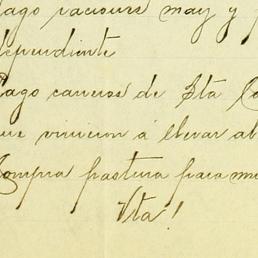 Pago raciones may y
dependiente
Pago carreros de Sta
que vinieron á llevar
Compra pastura para
Vta!